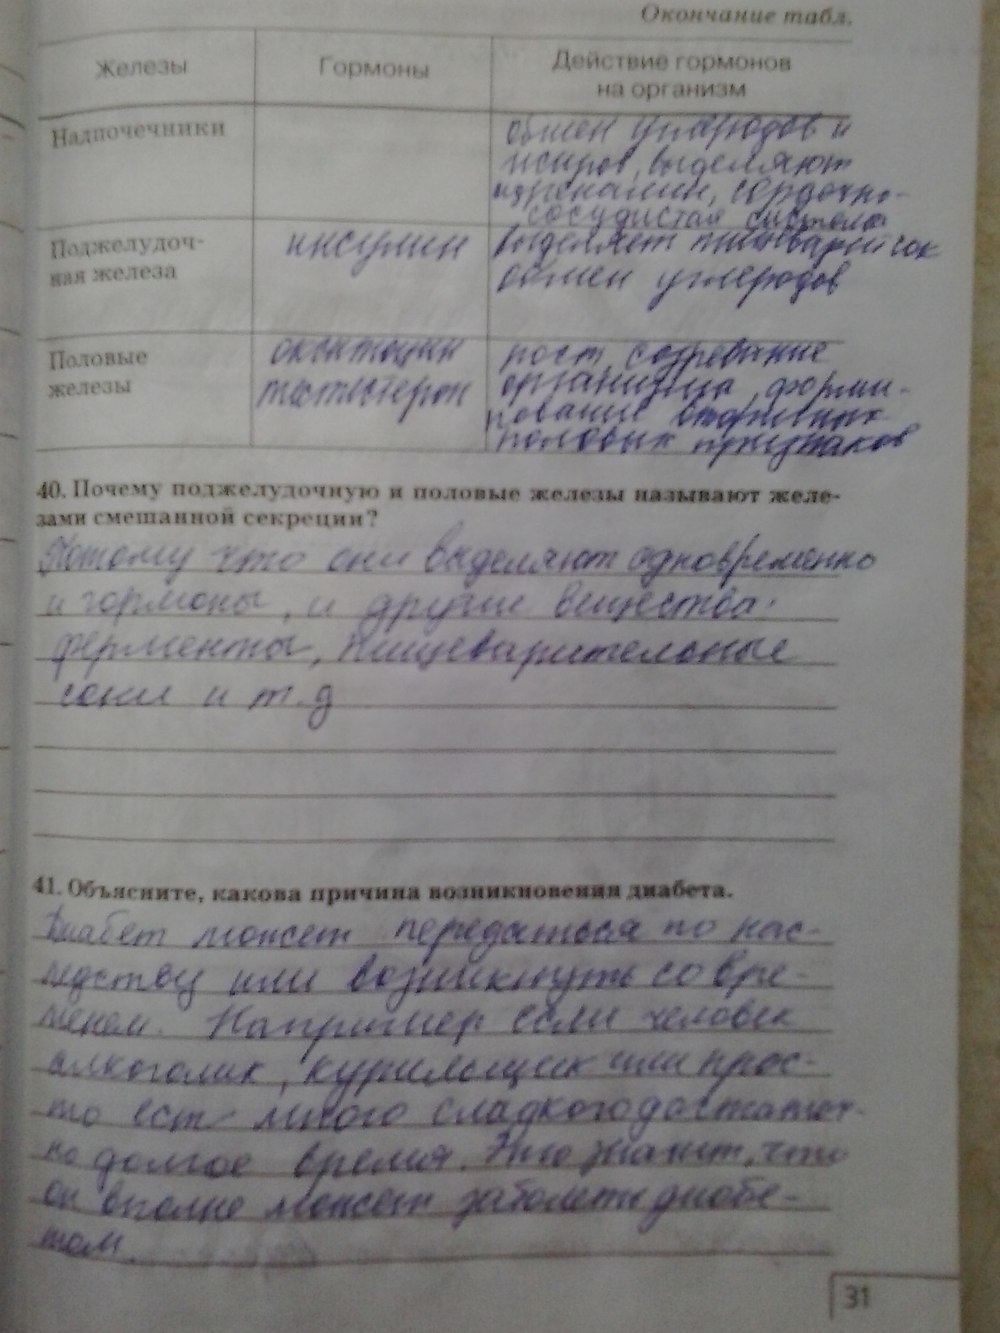 Окончание табл.
Железы
Гормоны
Действие гормонов
на организм
Надпочечники
обмен углеродов и
жиров, выделяют
адреналин, сердечно-
сосудистая система
Поджелудоч-
ная железа
инсулин
выделяет пищеварит сок
обмен углеродов
Половые
железы
окситоцин
тестостерон
рост, созревание
организма, форми-
рование вторичных
половых признаков
40. Почему поджелудочную и половые железы называют желе-
зами смешанной секреции?
Потому что они выделяют одновременно
и гормоны, и другие вещества:
ферменты, пищеварительные
соки и т.д
41. Объясните, какова причина возникновения диабета.
Диабет может передаться по нас-
ледству или возникнуть со вре-
менем. Например если человек
алкоголик, курильщик или прос-
то ест много сладкого достаточ-
но долгое время. Это значит, что
он вполне может заболеть диабе-
том.
31